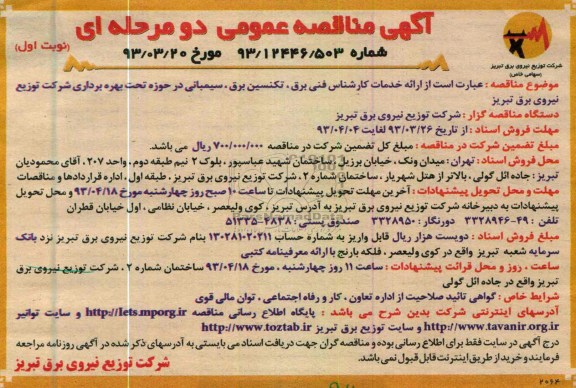 آگهی مناقصه عمومی دو مرحله ای
(نوبت اول)
شماره ۹۳/۱۲۴۴۶/۵۰۳ مورخ ۹۳/۰۳/۲۰
شرکت توزیع نیروی برق تبریز
(سهامی خاص)
موضوع مناقصه : عبارت است از ارائه خدمات کارشناس فنی برق ، تکنسین برق ، سیمبانی در حوزه تحت بهره برداری شرکت توزیع
نیروی برق تبریز
دستگاه مناقصه گزار : شرکت توزیع نیروی برق تبریز
مهلت فروش اسناد : از تاریخ ۹۳/۰۳/۲۶ لغایت ۹۳/۰۴/۰۴
مبلغ تضمین شرکت در مناقصه : مبلغ کل تضمین شرکت در مناقصه ۷۰۰/۰۰۰/۰۰۰ ریال می باشد.
محل فروش اسناد : تهران : میدان ونک ، خیابان برزیل ، ساختمان شهید عباسپور ، بلوک ۲ نیم طبقه دوم ، واحد ۲۰۷ ، آقای محمودیان
تبریز : جاده ائل گولی ، بالاتر از هتل شهریار ، ساختمان شماره ۲ ، شرکت توزیع نیروی برق تبریز ، طبقه اول ، اداره قراردادها و مناقصات
مهلت و محل تحویل پیشنهادات : آخرین مهلت تحویل پیشنهادات تا ساعت ۱۰ صبح روز چهارشنبه مورخ ۹۳/۰۴/۱۸ و محل تحویل
پیشنهادات به دبیرخانه شرکت توزیع نیروی برق تبریز به آدرس تبریز ، کوی ولیعصر ، خیابان نظامی ، اول خیابان قطران
تلفن : ۴۹-۳۳۲۸۹۴۶ دورنگار : ۳۳۲۸۹۵۰ صندوق پستی : ۴۸۳۸-۵۱۳۳۵
مبلغ فروش اسناد : دویست هزار ریال قابل واریز به شماره حساب ۱۳۰۲۸۱-۲۰۲۱۱ بنام شرکت توزیع نیروی برق تبریز نزد بانک
سرمایه شعبه تبریز واقع در کوی ولیعصر ، فلکه بارنج با ارائه معرفینامه کتبی
ساعت ، روز و محل قرائت پیشنهادات : ساعت ۱۱ روز چهارشنبه ، مورخ ۹۳/۰۴/۱۸ ساختمان شماره ۲ ، شرکت توزیع نیروی برق
تبریز واقع در جاده ائل گولی
شرایط خاص : گواهی تائید صلاحیت از اداره تعاون ، کار و رفاه اجتماعی ، توان مالی قوی
آدرسهای اینترنتی شرکت بدین شرح می باشد : پایگاه اطلاع رسانی مناقصه http://Iets.mporg.ir و سایت توانیر
http://www.tavanir.org.ir و سایت توزیع برق تبریز http://www.toztab.ir
درج آگهی در سایت فقط برای اطلاع رسانی بوده و مناقصه گران جهت دریافت اسناد می بایستی به آدرسهای ذکر شده در آگهی روزنامه مراجعه
فرمایند و خرید از طریق اینترنت قابل قبول نمی باشد.
شرکت توزیع نیروی برق تبریز